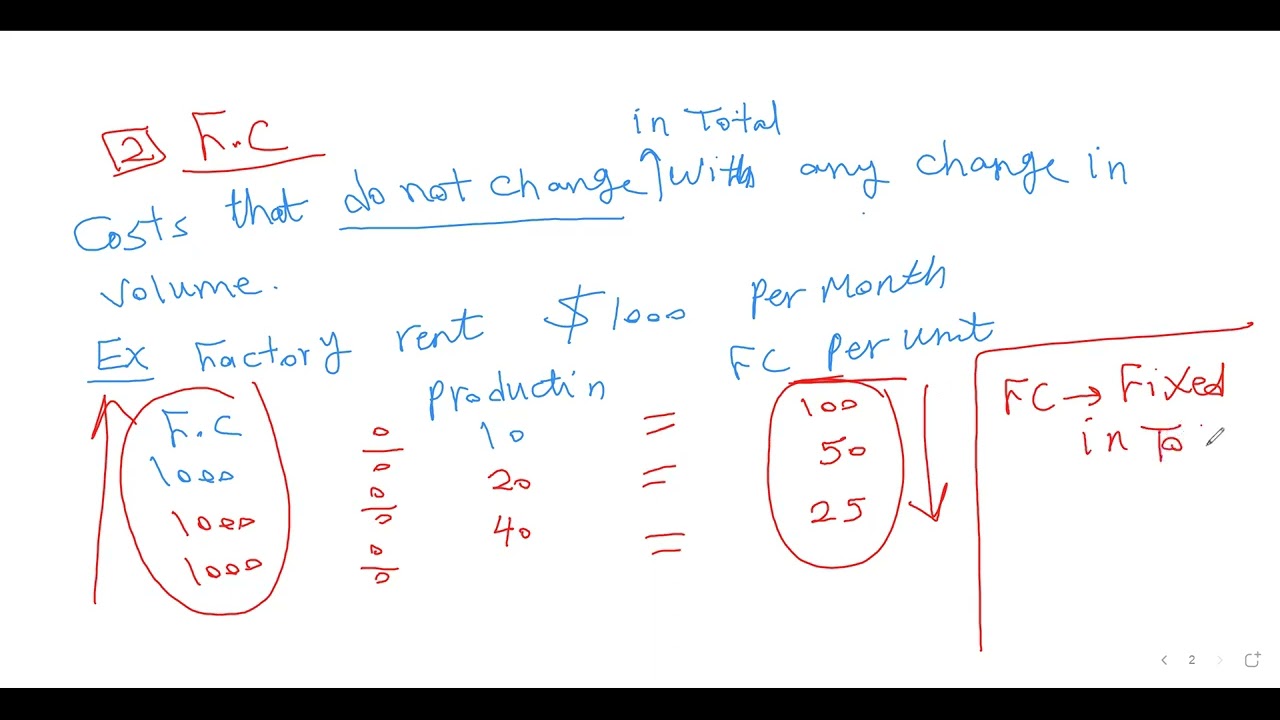 2 F.C
in Total
Costs that do not change with any change in
volume.
Ex Factory rent $1000 per Month
F.C Productin FC per unit
1000 ÷ 10 = 100
1000 ÷ 20 = 50
1000 ÷ 40 = 25
FC → Fixed
in To
2